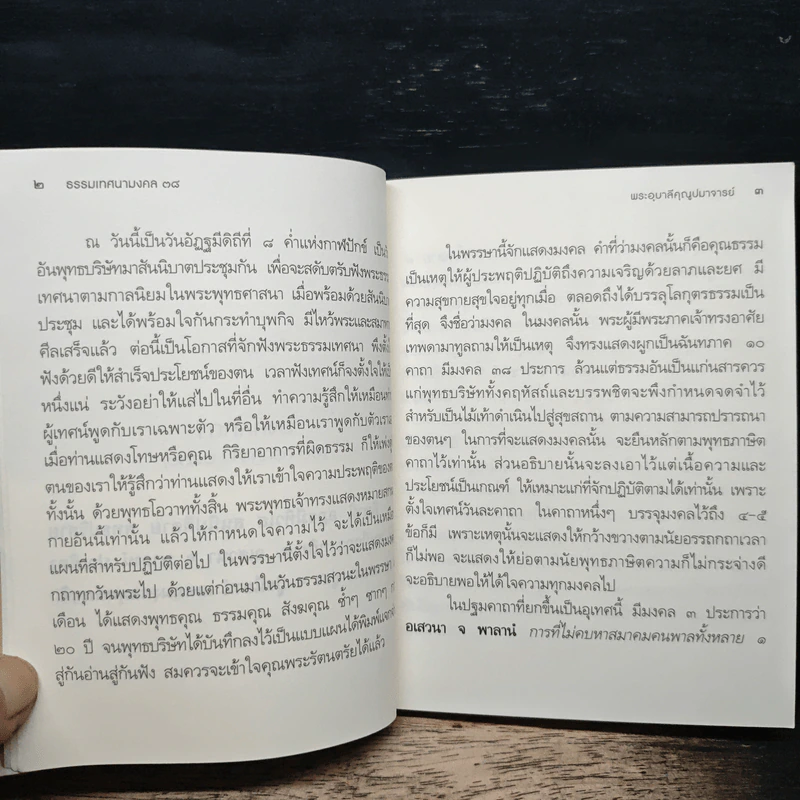 ๒ ธรรมเทศนามงคล ๓๘
ณ วันนี้เป็นวันอัฏฐมีดิถีที่ ๘ ค่ำแห่งกาฬปักข์ เป็นวั
อันพุทธบริษัทมาสันนิบาตประชุมกัน เพื่อจะสดับตรับฟังพระธรร
เทศนาตามกาลนิยมในพระพุทธศาสนา เมื่อพร้อมด้วยสันนิบ
ประชุม และได้พร้อมใจกันกระทำบุพกิจ มีไหว้พระและสมาท
ศีลเสร็จแล้ว ต่อนี้เป็นโอกาสที่จักฟังพระธรรมเทศนา พึงตั้งใ
ฟังด้วยดีให้สำเร็จประโยชน์ของตน เวลาฟังเทศน์ก็จงตั้งใจให้เป็
หนึ่งแน่ ระวังอย่าให้แส่ไปในที่อื่น ทำความรู้สึกให้เหมือนกั
ผู้เทศน์พูดกับเราเฉพาะตัว หรือให้เหมือนเราพูดกับตัวเรา
เมื่อท่านแสดงโทษหรือคุณ กิริยาอาการที่ผิดธรรม ก็ให้เพ่ง
ตนของเราให้รู้สึกว่าท่านแสดงให้เราเข้าใจความประพฤติของ
ทั้งนั้น ด้วยพุทธโอวาททั้งสิ้น พระพุทธเจ้าทรงแสดงหมายสก
กายอันนี้เท่านั้น แล้วให้กำหนดใจความไว้ จะได้เป็นเหมือ
แผนที่สำหรับปฏิบัติต่อไป ในพรรษานี้ตั้งใจไว้ว่าจะแสดงมง
กถาทุกวันพระไป ด้วยแต่ก่อนมาในวันธรรมสวนะในพรรษา
เดือน ได้แสดงพุทธคุณ ธรรมคุณ สังฆคุณ ซ้ำๆ ซากๆ ก
๒๐ ปี จนพุทธบริษัทได้บันทึกลงไว้เป็นแบบแผนได้พิมพ์แจก
สู่กันอ่านสู่กันฟัง สมควรจะเข้าใจคุณพระรัตนตรัยได้แล้ว
พระอุบาลีคุณูปมาจารย์ ๓
ในพรรษานี้จักแสดงมงคล คำที่ว่ามงคลนั้นก็คือคุณธรรม
เป็นเหตุให้ผู้ประพฤติปฏิบัติถึงความเจริญด้วยลาภและยศ มี
ความสุขกายสุขใจอยู่ทุกเมื่อ ตลอดถึงได้บรรลุโลกุตรธรรมเป็น
ที่สุด จึงชื่อว่ามงคล ในมงคลนั้น พระผู้มีพระภาคเจ้าทรงอาศัย
เทพดามาทูลถามให้เป็นเหตุ จึงทรงแสดงผูกเป็นฉันทภาค ๑๐
คาถา มีมงคล ๓๘ ประการ ล้วนแต่ธรรมอันเป็นแก่นสารควร
แก่พุทธบริษัททั้งคฤหัสถ์และบรรพชิตจะพึงกำหนดจดจำไว้
สำหรับเป็นไม้เท้าดำเนินไปสู่สุขสถาน ตามความสามารถปรารถนา
ของตนๆ ในการที่จะแสดงมงคลนั้น จะยืนหลักตามพุทธภาษิต
คาถาไว้เท่านั้น ส่วนอธิบายนั้นจะลงเอาไว้แต่เนื้อความและ
ประโยชน์เป็นเกณฑ์ ให้เหมาะแก่ที่จักปฏิบัติตามได้เท่านั้น เพราะ
ตั้งใจเทศน์วันละคาถา ในคาถาหนึ่งๆ บรรจุมงคลไว้ถึง ๔-๕
ข้อก็มี เพราะเหตุนั้นจะแสดงให้กว้างขวางตามนัยอรรถกถาเวลา
ก็ไม่พอ จะแสดงให้ย่อตามนัยพุทธภาษิตความก็ไม่กระจ่างดี
จะอธิบายพอให้ได้ใจความทุกมงคลไป
ในปฐมคาถาที่ยกขึ้นเป็นอุเทศนี้ มีมงคล ๓ ประการว่า
อเสวนา จ พาลานํ การที่ไม่คบหาสมาคมคนพาลทั้งหลาย ๑